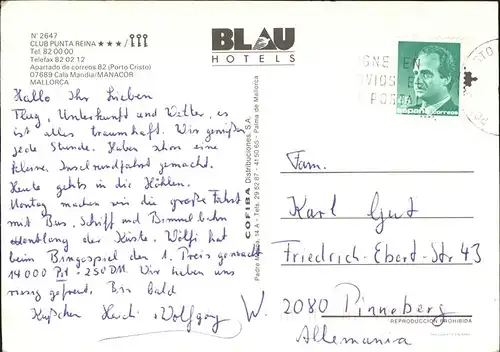 N° 2647
CLUB PUNTA REINA ★★★ /
Tel. 82 00 00
Telefax 82 02 12
Apartado de correos 82 (Porto Cristo)
07689 Cala Mandia/MANACOR
MALLORCA
BLAU
HOTELS
Hallo Ihr Lieben
Flug, Unterkunft und Wetter, es
ist alles traumhaft. Wir genießen
jede Stunde. Haben schon eine
kleine Inselrundfahrt gemacht.
Heute gehts in die Höhlen.
Montag machen wir die große Fahrt
mit Bus, Schiff und Bimmelbahn
entlang der Küste. Wölfi hat
beim Bingospiel den 1. Preis gemacht
14000 Pst - 250 DM. Wir haben uns
riesig gefreut. Bis bald
Küßchen Heidi Wolfgang W.
COFIBA Distribuciones, S.A.
Tels. 29 82 87 - 41 50 65 - Palma de Mallorca
GNE EN
POSTAL
españa
Fam.
Karl Gut
Friedrich-Ebert-Str 43
2080 Pinneberg
REPRODUCCIÓN PROHIBIDA
Allemania